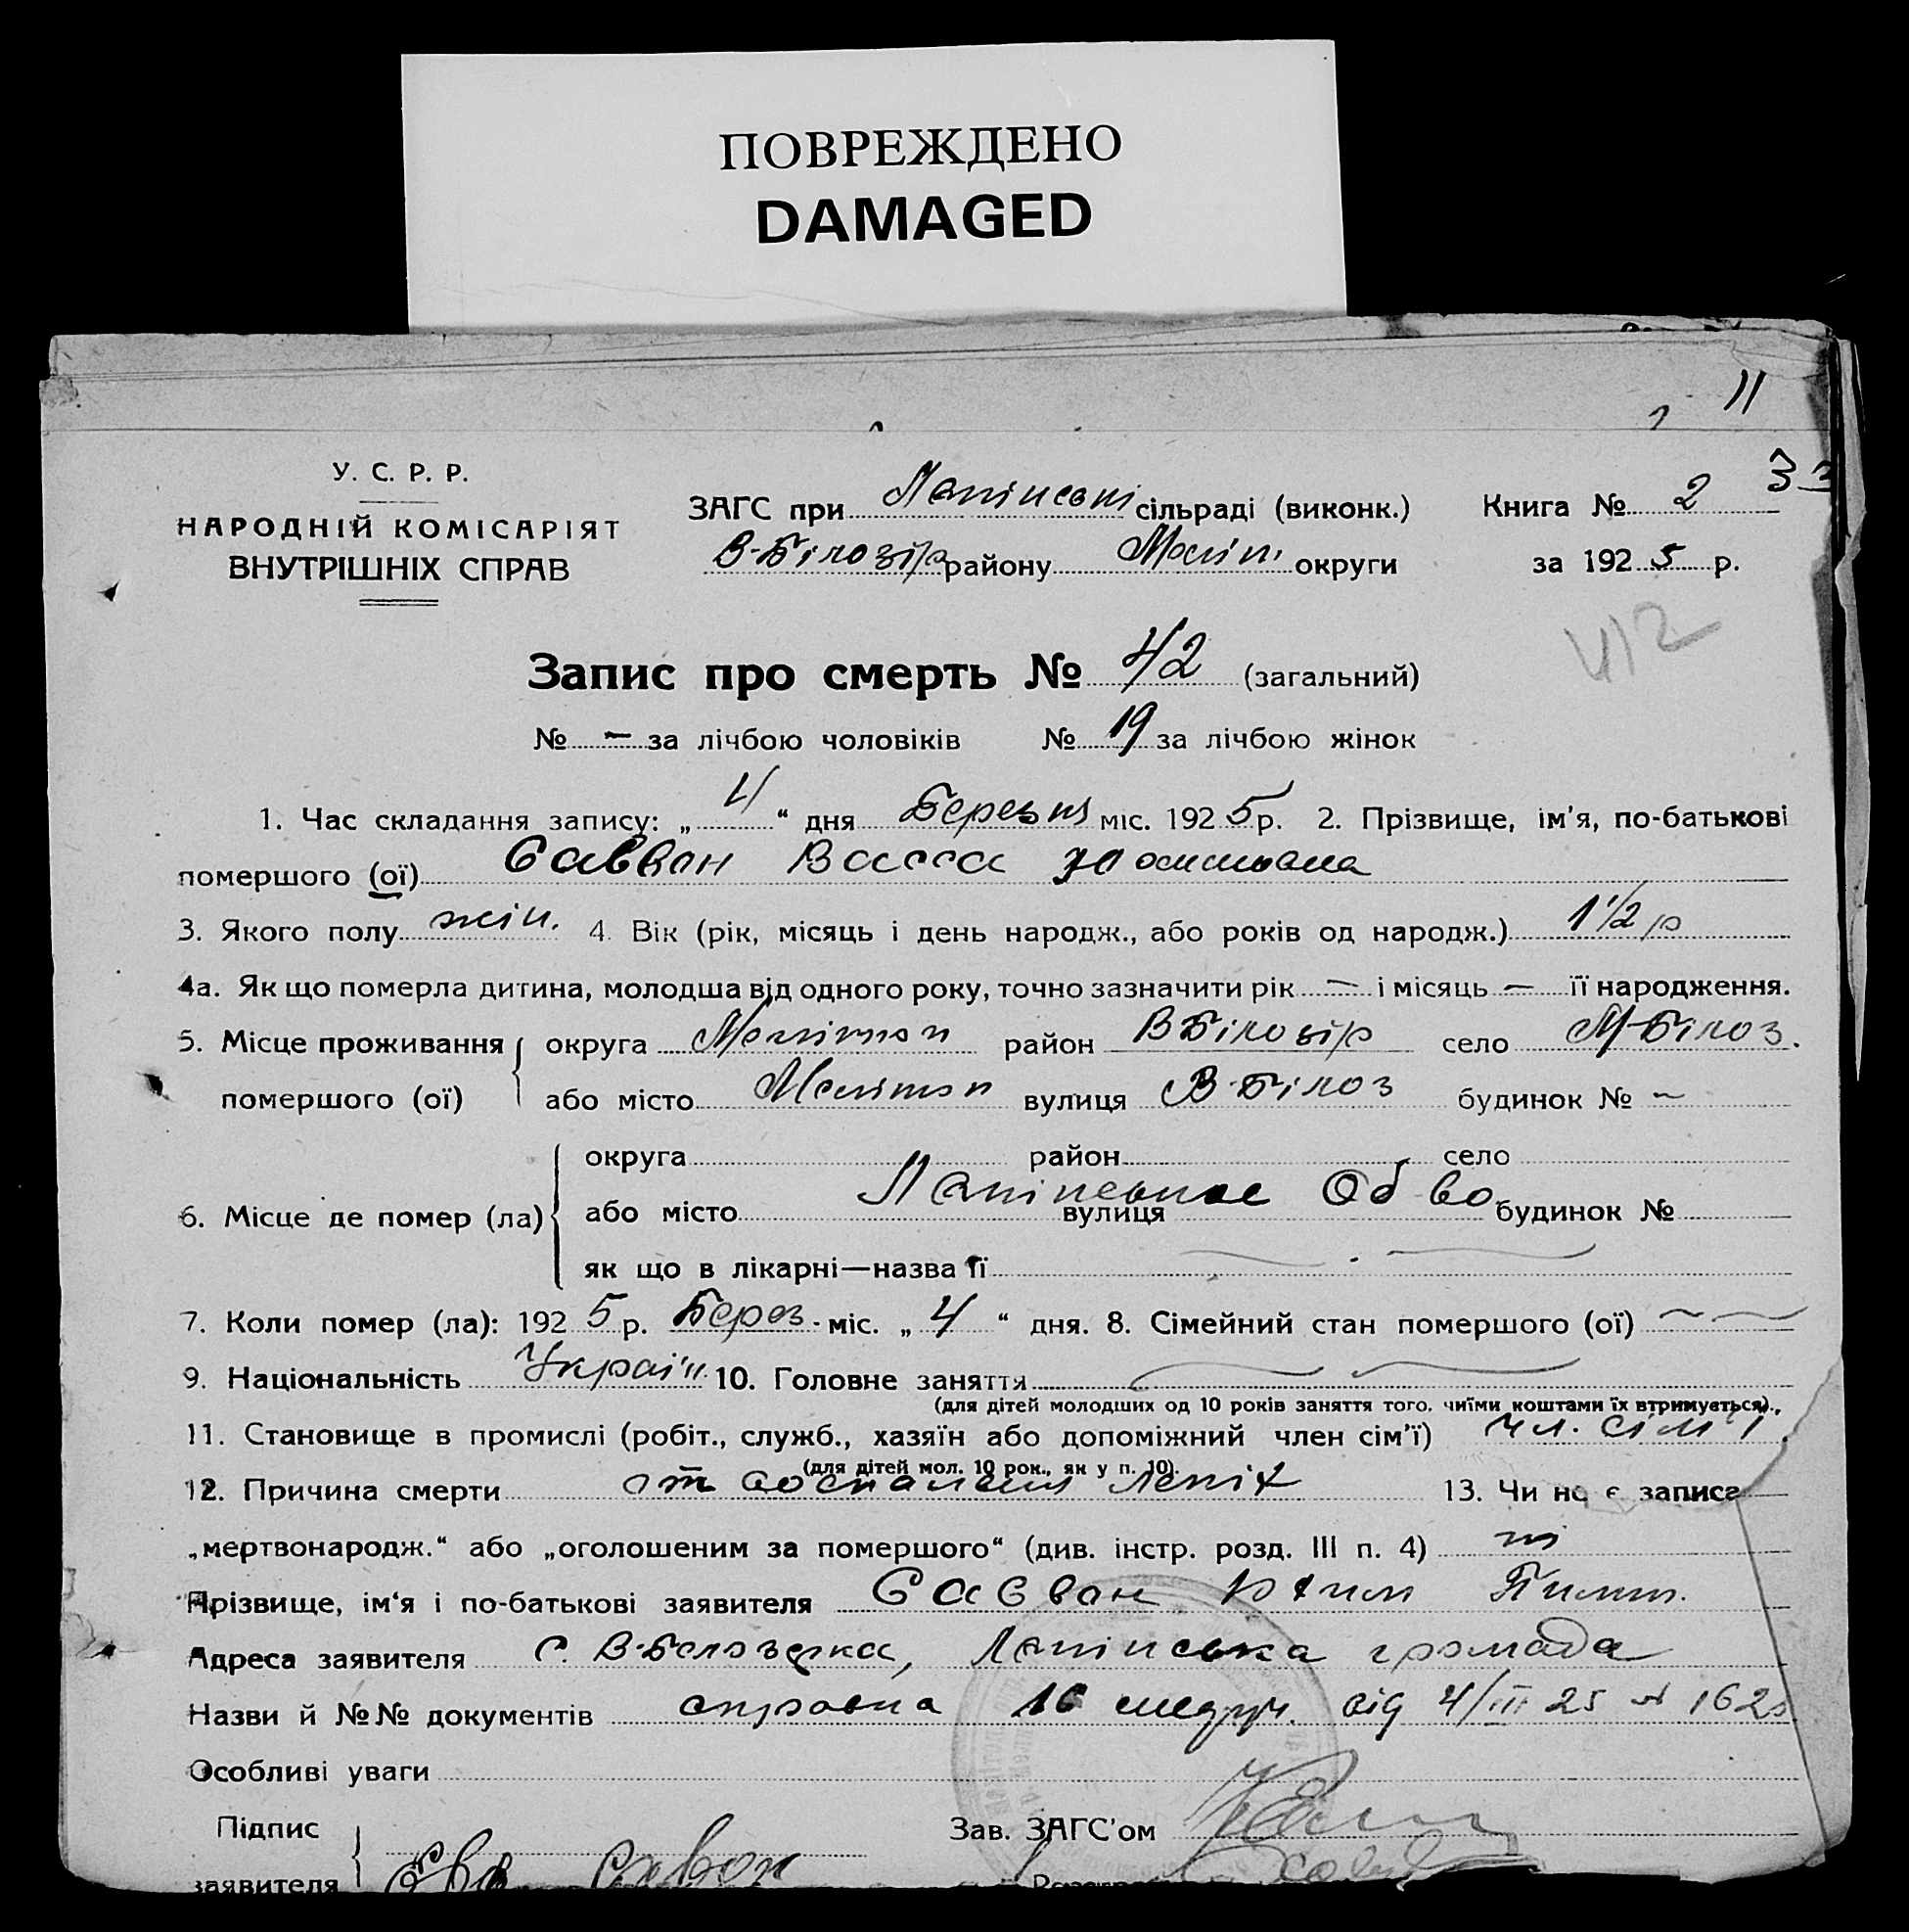 ПОВРЕЖДЕНО
DAMAGED
11
У. С. Р. Р.
НАРОДНІЙ КОМІСАРІЯТ
ВНУТРІШНІХ СПРАВ
ЗАГС при Лапінські сільраді (виконк.)
В-Білозір району Меліт. округи
Книга № 2
33
за 1925 р.
Запис про смерть № 42 (загальний)
412
№ – за лічбою чоловіків № 19 за лічбою жінок
1. Час складання запису: „ 4 “ дня Березня міс. 1925 р. 2. Прізвище, ім’я, по-батькові
помершого (ої) Савван Васса
3. Якого полу жін. 4. Вік (рік, місяць і день народж., або років од народж.) 1 1/2 р
4а. Як що померла дитина, молодша від одного року, точно зазначити рік – і місяць – її народження.
5. Місце проживання округа Мелітоп район В Білозір село М-Білоз.
помершого (ої) або місто Мелітоп вулиця В-Білоз будинок № –
округа район село
6. Місце де помер (ла) або місто Лапінське Об-во вулиця будинок №
як що в лікарні—назва її –
7. Коли помер (ла): 1925 р. Берез. міс. „ 4 “ дня. 8. Сімейний стан помершого (ої) –
9. Національність Україн. 10. Головне заняття –
(для дітей молодших од 10 років заняття того, чиїми коштами їх втримується).
11. Становище в промислі (робіт., служб., хазяїн або допоміжний член сім’ї) чл. сім’ї
(для дітей мол. 10 рок., як у п. 10).
12. Причина смерти от воспаления легих 13. Чи не є записа
„мертвонародж.“ або „оголошеним за помершого“ (див. інстр. розд. III п. 4) ні
Прізвище, ім‘я і по-батькові заявителя Савван Юхим Пилип.
Адреса заявителя с. В-Белозерка, Лапінська громада
Назви й №№ документів справка 16 медруч. від 4/III 25 № 162
Особливі уваги
Підпис
заявителя Савон
Зав. ЗАГС’ом